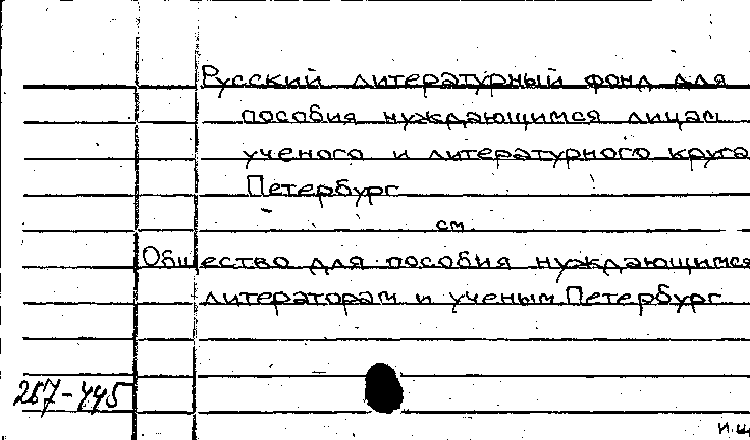 Русский литературный фонд для
пособия нуждающимся лицам
ученого и литературного круга
Петербург
см.
Общество для пособия нуждающимся
литераторам и ученым. Петербург
267-445
и.щ